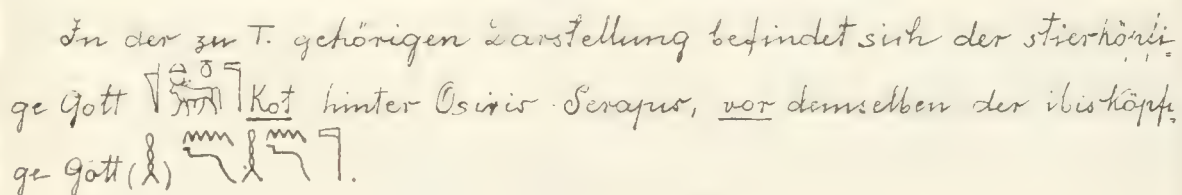 In der zu T. gehörigen Darstellung befindet sich der
ge Gott Kot hinter Osiris-Serapis, vor demselben der ibisköpfi-
ge Gott (𓎛) .